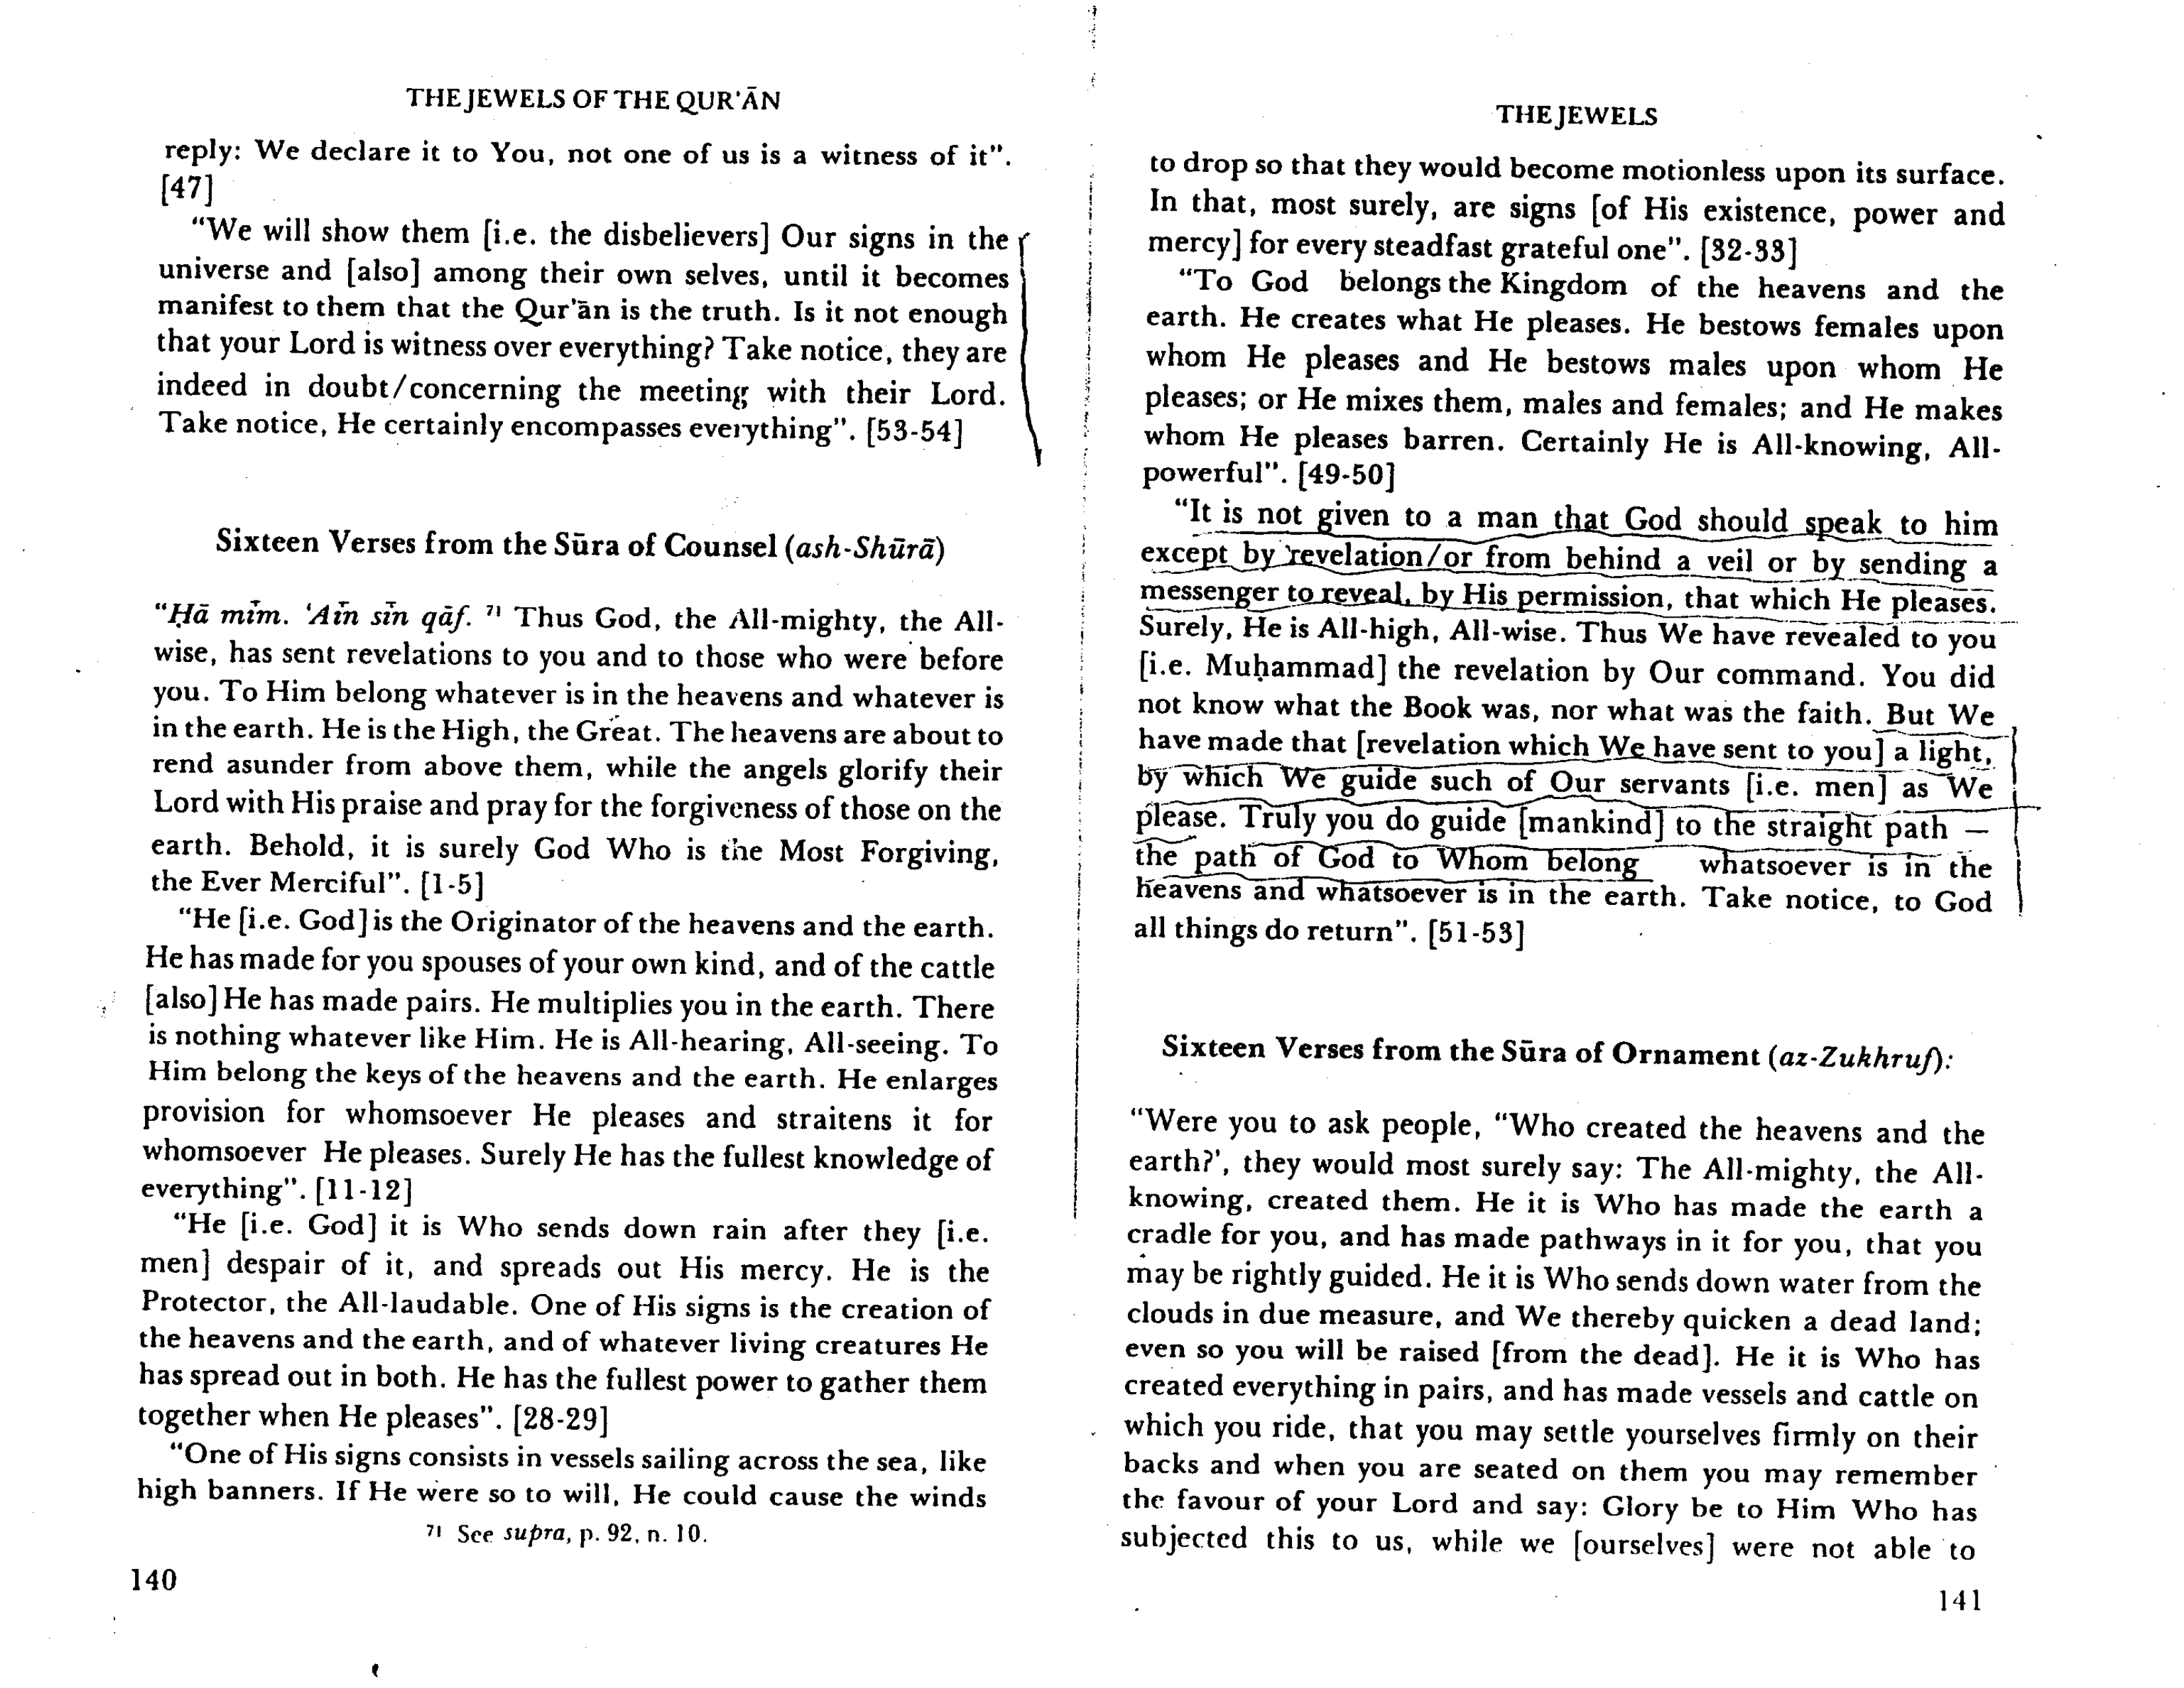 THE JEWELS OF THE QUR'ĀN
reply: We declare it to You, not one of us is a witness of it".
[47]
"We will show them [i.e. the disbelievers] Our signs in the
universe and [also] among their own selves, until it becomes
manifest to them that the Qur'ān is the truth. Is it not enough
that your Lord is witness over everything? Take notice, they are
indeed in doubt/concerning the meeting with their Lord.
Take notice, He certainly encompasses everything". [53-54]
Sixteen Verses from the Sūra of Counsel (ash-Shūrā)
"Ḥā mīm. 'Aīn sīn qāf. 71 Thus God, the All-mighty, the All-
wise, has sent revelations to you and to those who were before
you. To Him belong whatever is in the heavens and whatever is
in the earth. He is the High, the Great. The heavens are about to
rend asunder from above them, while the angels glorify their
Lord with His praise and pray for the forgiveness of those on the
earth. Behold, it is surely God Who is the Most Forgiving,
the Ever Merciful". [1-5]
"He [i.e. God] is the Originator of the heavens and the earth.
He has made for you spouses of your own kind, and of the cattle
[also] He has made pairs. He multiplies you in the earth. There
is nothing whatever like Him. He is All-hearing, All-seeing. To
Him belong the keys of the heavens and the earth. He enlarges
provision for whomsoever He pleases and straitens it for
whomsoever He pleases. Surely He has the fullest knowledge of
everything". [11-12]
"He [i.e. God] it is Who sends down rain after they [i.e.
men] despair of it, and spreads out His mercy. He is the
Protector, the All-laudable. One of His signs is the creation of
the heavens and the earth, and of whatever living creatures He
has spread out in both. He has the fullest power to gather them
together when He pleases". [28-29]
"One of His signs consists in vessels sailing across the sea, like
high banners. If He were so to will, He could cause the winds
71 See supra, p. 92, n. 10.
140
THE JEWELS
to drop so that they would become motionless upon its surface.
In that, most surely, are signs [of His existence, power and
mercy] for every steadfast grateful one". [32-33]
"To God belongs the Kingdom of the heavens and the
earth. He creates what He pleases. He bestows females upon
whom He pleases and He bestows males upon whom He
pleases; or He mixes them, males and females; and He makes
whom He pleases barren. Certainly He is All-knowing, All-
powerful". [49-50]
"It is not given to a man that God should speak to him
except by revelation/or from behind a veil or by sending a
messenger to reveal, by His permission, that which He pleases.
Surely, He is All-high, All-wise. Thus We have revealed to you
[i.e. Muḥammad] the revelation by Our command. You did
not know what the Book was, nor what was the faith. But We
have made that [revelation which We have sent to you] a light,
by which We guide such of Our servants [i.e. men] as We
please. Truly you do guide [mankind] to the straight path —
the path of God to Whom belong whatsoever is in the
heavens and whatsoever is in the earth. Take notice, to God
all things do return". [51-53]
Sixteen Verses from the Sūra of Ornament (az-Zukhruf):
"Were you to ask people, "Who created the heavens and the
earth?', they would most surely say: The All-mighty, the All-
knowing, created them. He it is Who has made the earth a
cradle for you, and has made pathways in it for you, that you
may be rightly guided. He it is Who sends down water from the
clouds in due measure, and We thereby quicken a dead land;
even so you will be raised [from the dead]. He it is Who has
created everything in pairs, and has made vessels and cattle on
which you ride, that you may settle yourselves firmly on their
backs and when you are seated on them you may remember
the favour of your Lord and say: Glory be to Him Who has
subjected this to us, while we [ourselves] were not able to
141